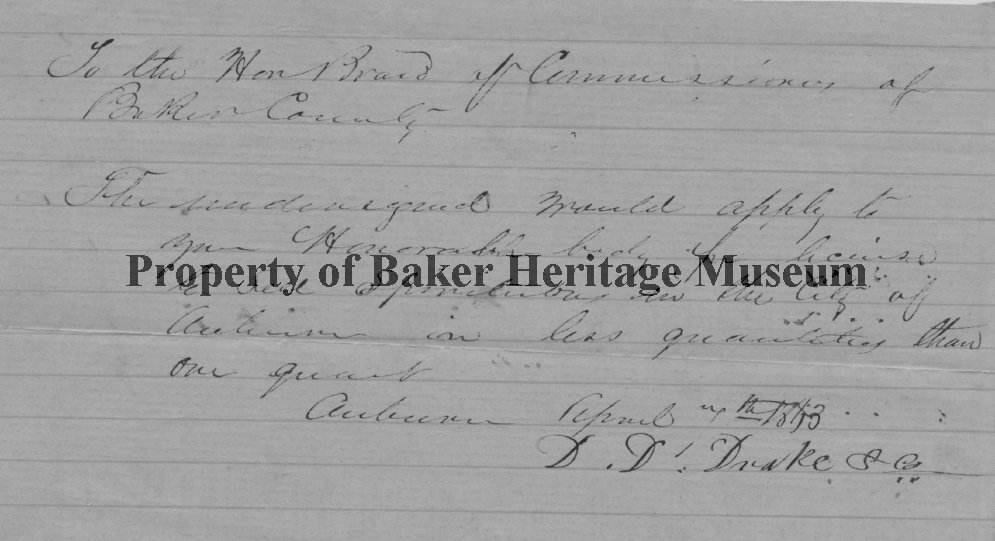 To the Hon Board of Commissioners of
Baker County
The undersigned would apply to
your Honorable body for license
Property of Baker Heritage Museum
to sell Spirituous in the City of
Auburn in less quantities than
one quart
Auburn April 7th 1863
D. D. Drake & Co